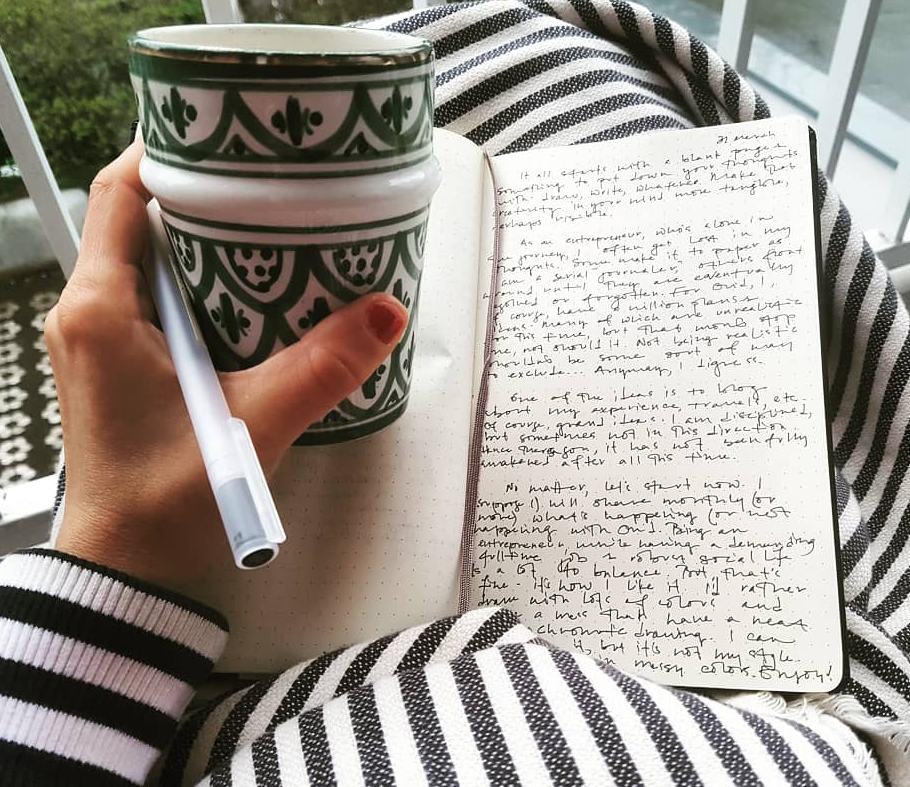 31 March
It all starts with a blank page &
something to jot down your thoughts
with. draw, write, whatever. Make that
creativity in your mind more tangible,
perhaps visible.
As an entrepreneur, who's alone in
journey, I often get lost in my
thoughts. Some make it to paper as
I am a serial journaler, others float
around until they are eventually
or forgotten. For Ovid, I,
of course, have a million plans
ideas. Many of which are unrealistic
this time, but that won't stop
me, not should it. Not being realistic
shouldn't be some sort of way
to exclude... Anyway, I digress.
One of the ideas is to blog
about my experience, travels, etc.
Of course, grand idea. I am disciplined,
but sometimes not in this direction.
Hence the reason, it has not been fully
awakened after all this time.
No matter, let's start now. I
will share monthly (or
more) what's happening (or not
happening with Ovid. Being an
entrepreneur, while having a demanding
full-time job & robust social life
is a lot to balance. But, that's
fine. it's how I like it. I'd rather
draw with lots of colors and
a mess than have a neat
chromatic drawing. I can
it, but it's not my style.
in messy color. Enjoy!